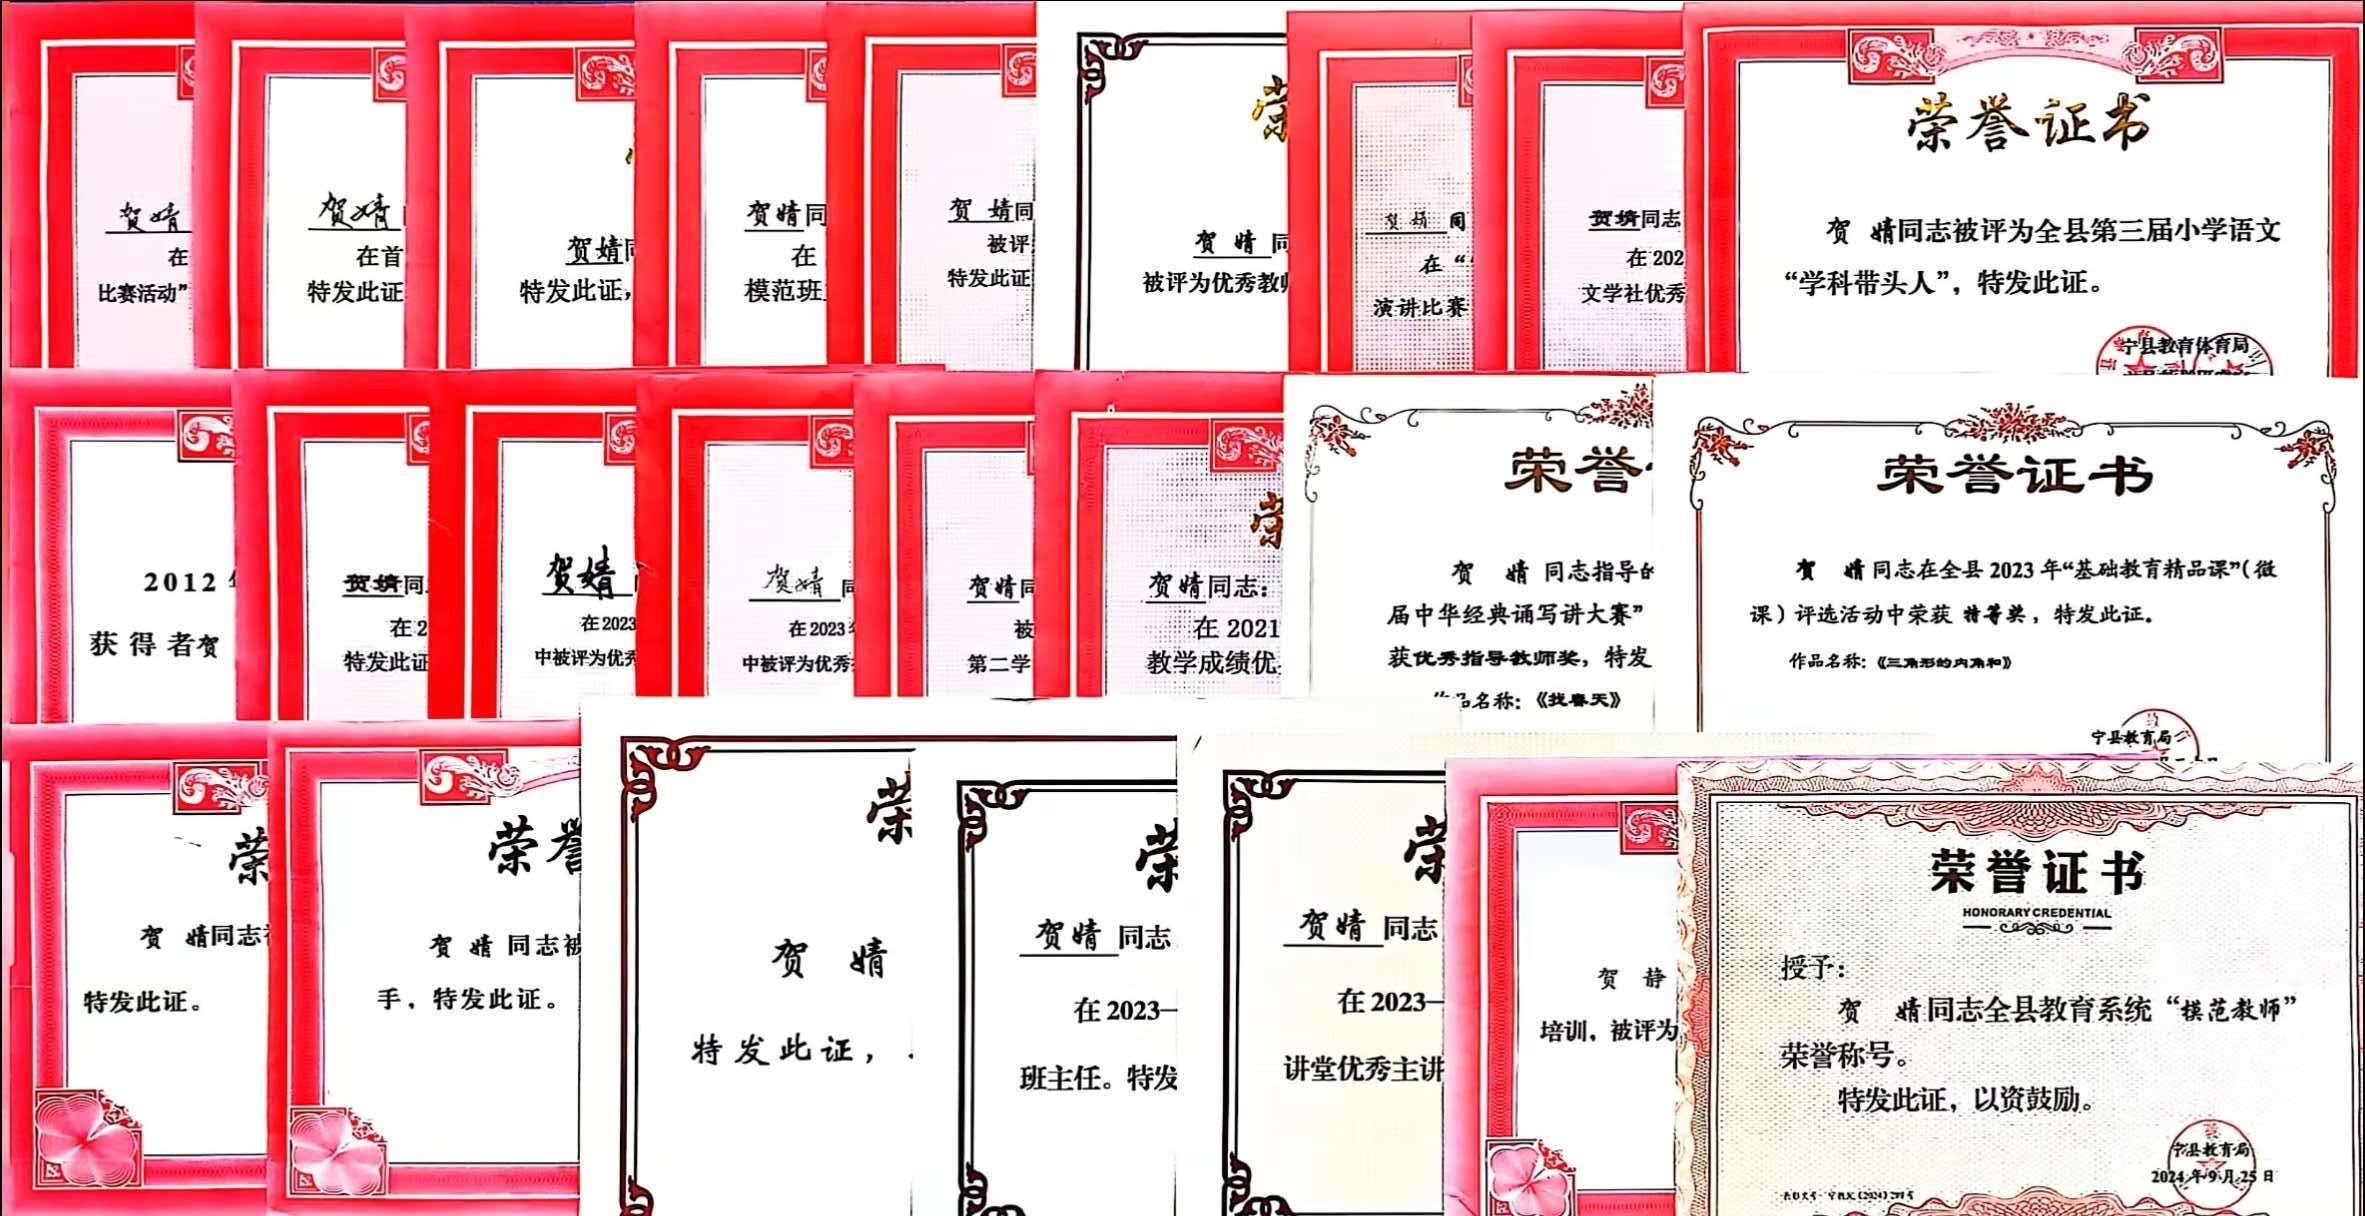 贺婧
在
比赛活动”
贺婧
在首
特发此证
贺婧同
特发此证，
贺婧同
在
模范班主
贺 婧同
被评
特发此证
荣
贺 婧 同
被评为优秀教师
贺 婧 同
在“
演讲比赛
贺婧同志
在 202
文学社优秀
荣誉证书
贺 婧同志被评为全县第三届小学语文
“学科带头人”，特发此证。
宁县教育体育局
2012 年
获得者贺
贺婧同
在2
特发此证
贺婧
在2023
中被评为优秀
贺婧 同
在 2023
中被评为优秀
贺婧同
被
第二学
荣
贺婧同志：
在 2021
教学成绩优
荣誉
贺 婧 同志指导的
届中华经典诵写讲大赛”
获优秀指导教师奖，特发
作品名称：《找春天》
荣誉证书
贺 婧同志在全县 2023 年“基础教育精品课”（微
课）评选活动中荣获 特等奖，特发此证。
作品名称：《三角形的内角和》
宁县教育局
荣
贺 婧同志
特发此证。
荣誉
贺 婧 同志被
手，特发此证。
荣
贺 婧
特发此证，
荣
贺婧 同志
在 2023—
班主任。特发
荣
贺婧 同志
在 2023—
讲堂优秀主讲
贺 静
培训，被评为
荣誉证书
HONORARY CREDENTIAL
授予：
贺 婧同志全县教育系统“模范教师”
荣誉称号。
特发此证，以资鼓励。
宁县教育局
2024年9月25日